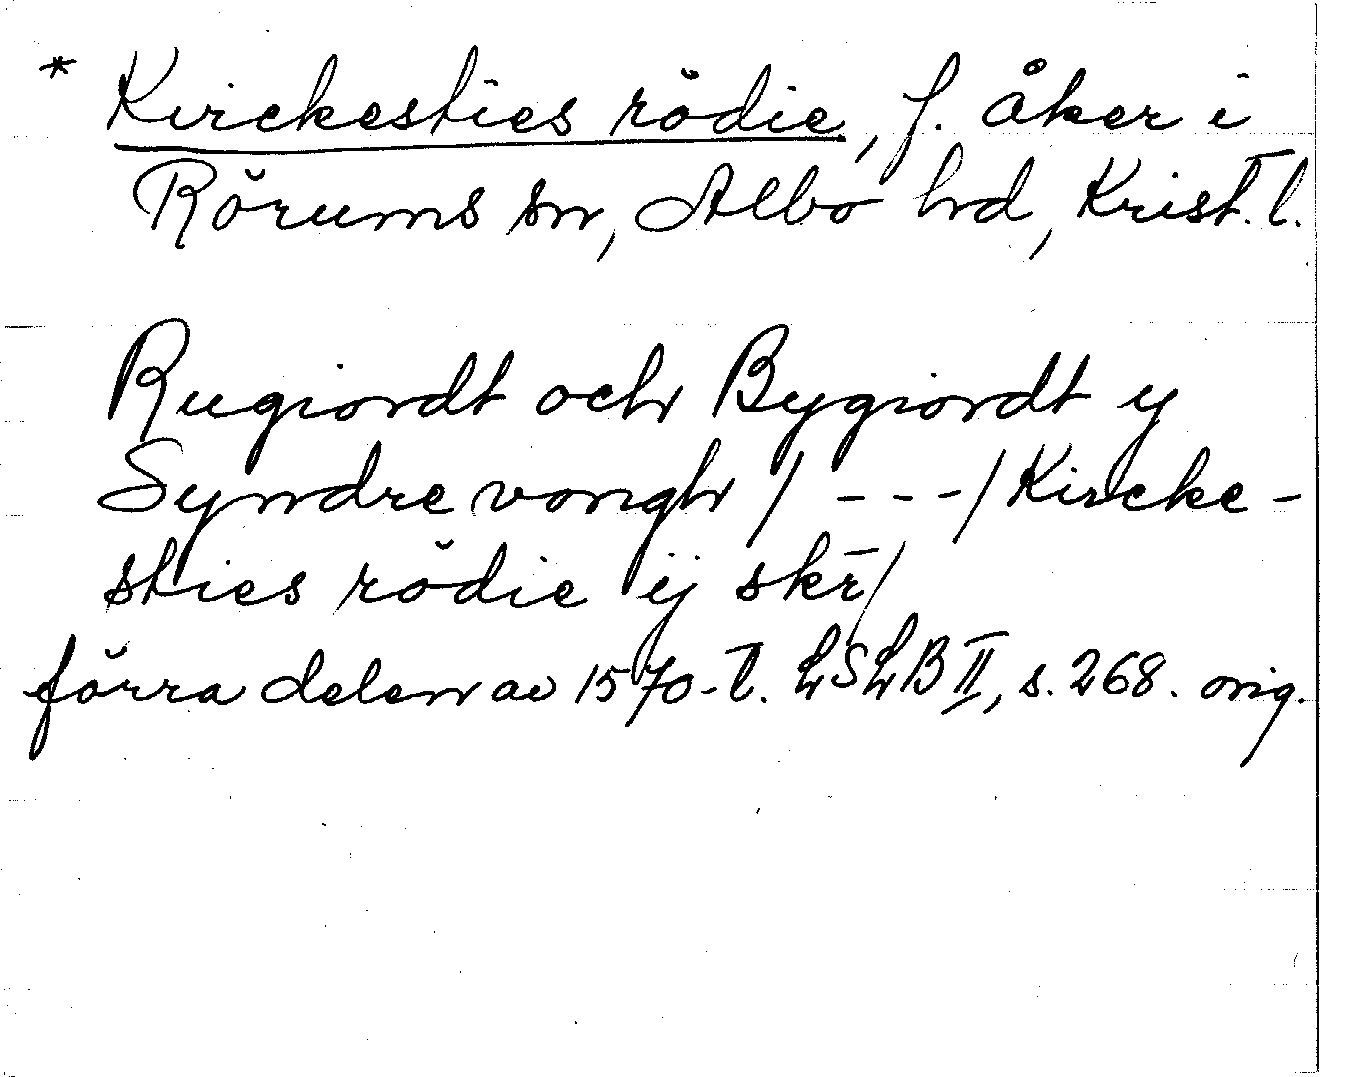 * Kirckesties rödie, f. åker i
Rörums sn, Albo hd, Krist. l.
Rugiordt och Bygiordt y
Syndre vongh / - - - / Kircke-
sties rödie ij skr̄ /
förra delen av 1570-t. LSLB II, s. 268. orig.